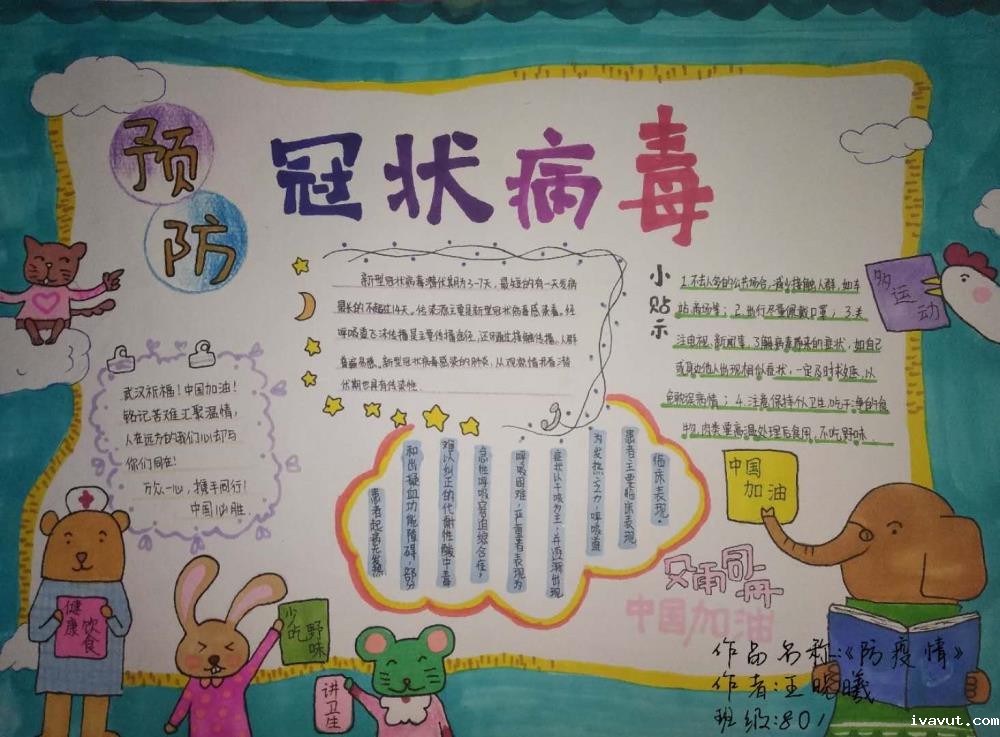 预
防
冠状病毒
新型冠状病毒潜伏期为3-7天，最短的有一天发病
最长的不超过14天。传染源主要是新型冠状病毒感染者。经
呼吸道飞沫传播是主要传播途径，还可通过接触传播。人群
普遍易感。新型冠状病毒感染的肺炎，从现有情况看潜
伏期也具有传染性。
小贴示
1.不去人多的公共场合，减少接触人群，如车
站、商场等；2.出行尽量佩戴口罩；3.关
注电视、新闻等，了解病毒带来的症状，如自己
或身边他人出现相似症状，一定及时求医，以
免耽误病情；4.注意保持个人卫生，吃干净的食
物，肉类要高温处理后食用，不吃野味。
多运动
武汉祈福！中国加油！
铭记苦难汇聚温情，
人在远方的我们心却与
你们同在！
万众一心，携手同行！
中国必胜
临床表现：
患者主要临床表现
为发热、乏力，呼吸道
症状以干咳为主，并逐渐出现
呼吸困难，严重者表现为
急性呼吸窘迫综合征，
难以纠正的代谢性酸中毒
和出凝血功能障碍，部分
患者起病无发热
中国
加油
风雨同舟
中国加油
健康
饮食
少吃
野味
讲卫生
作品名称：《防疫情》
作者：王晓曦
班级：801
ivavut.com